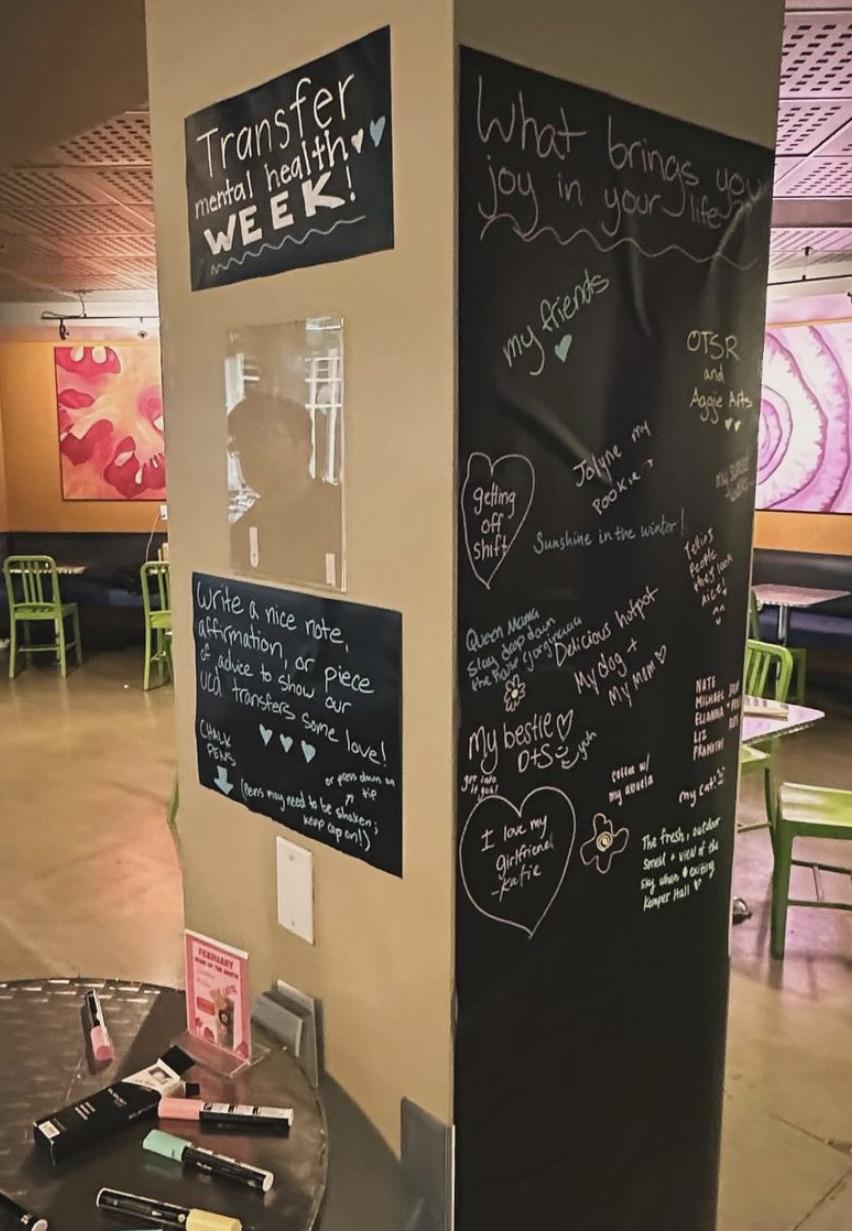 Transfer
mental health
WEEK!
Write a nice note,
affirmation, or piece
of advice to show our
UCD transfers some love!
CHALK
PENS
or press down on
tip
(Pens may need to be shaken;
keep cap on!)
FEBRUARY
DRINK OF THE MONTH
LATTE
What brings you
joy in your life?
my friends
OTSR
and
Aggie Arts
getting
off
shift
Jolyne my
pookie :)
my
Sunshine in the winter!
Telling
people
they look
nice!
Queen Mama
slay drop down
the house
Delicious hotpot
My dog +
My Mom
My bestie
D+S yuh
get into
it yuh!
NATE
MICHAEL
ELIANNA
LIZ
coffee w/
my abuela
my cat!
I love my
girlfriend
-Katie
The fresh, outdoor
smell + view of the
sky when exiting
Kemper Hall